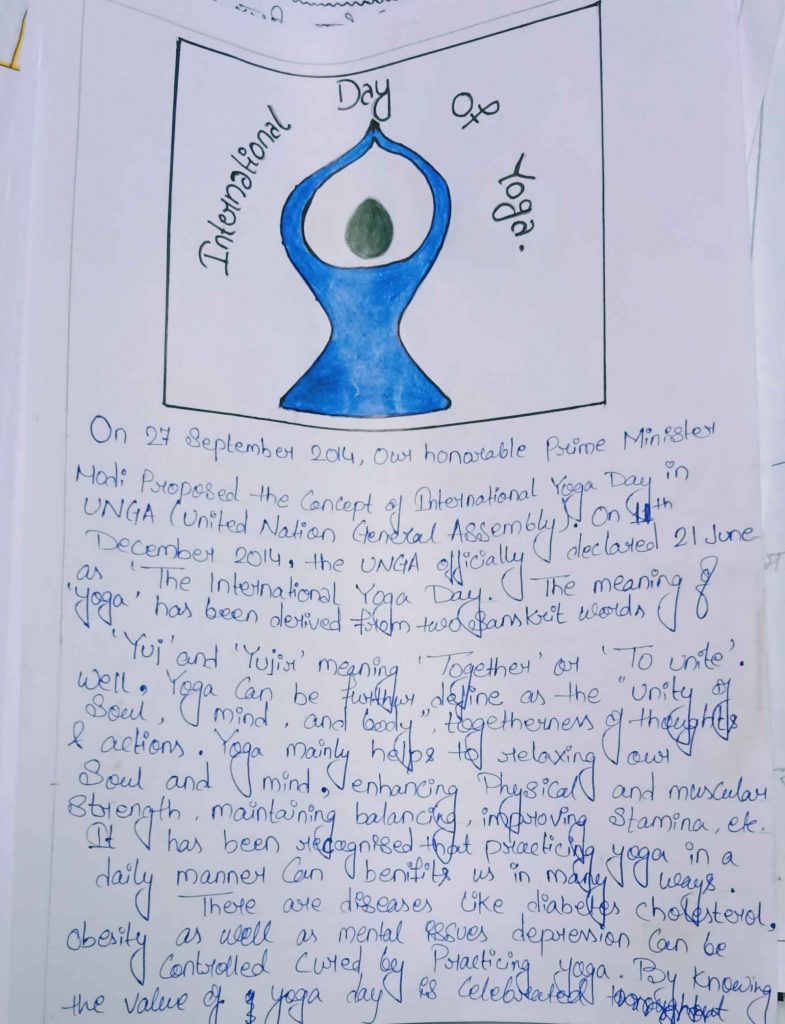 International Day Of Yoga.
On 27 September 2014, our honorable Prime Minister
Modi Proposed the Concept of International Yoga Day in
UNGA (United Nation General Assembly). On 11th
December 2014, the UNGA officially declared 21 June
as 'The International Yoga Day. The meaning of
'Yoga' has been derived from two Sanskrit words
'Yuj' and 'Yujir' meaning 'Together' or 'To unite'.
Well, Yoga Can be further define as the "unity of
Soul, mind, and body", togetherness of thoughts
& actions. Yoga mainly helps to relaxing our
Soul and mind, enhancing Physical and muscular
Strength, maintaining balancing, improving Stamina, etc.
It has been recognised that practicing yoga in a
daily manner Can benifits us in many ways.
There are diseases like diabetes cholesterol,
obesity as well as mental issues depression Can be
Controlled Cured by Practicing yoga. By knowing
the value of yoga day is Celebrated